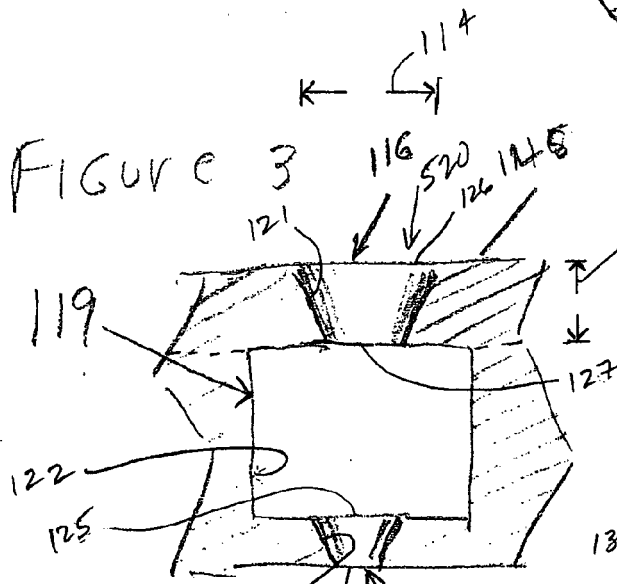 114
Figure 3
116
520
126
121
119
127
122
125
13